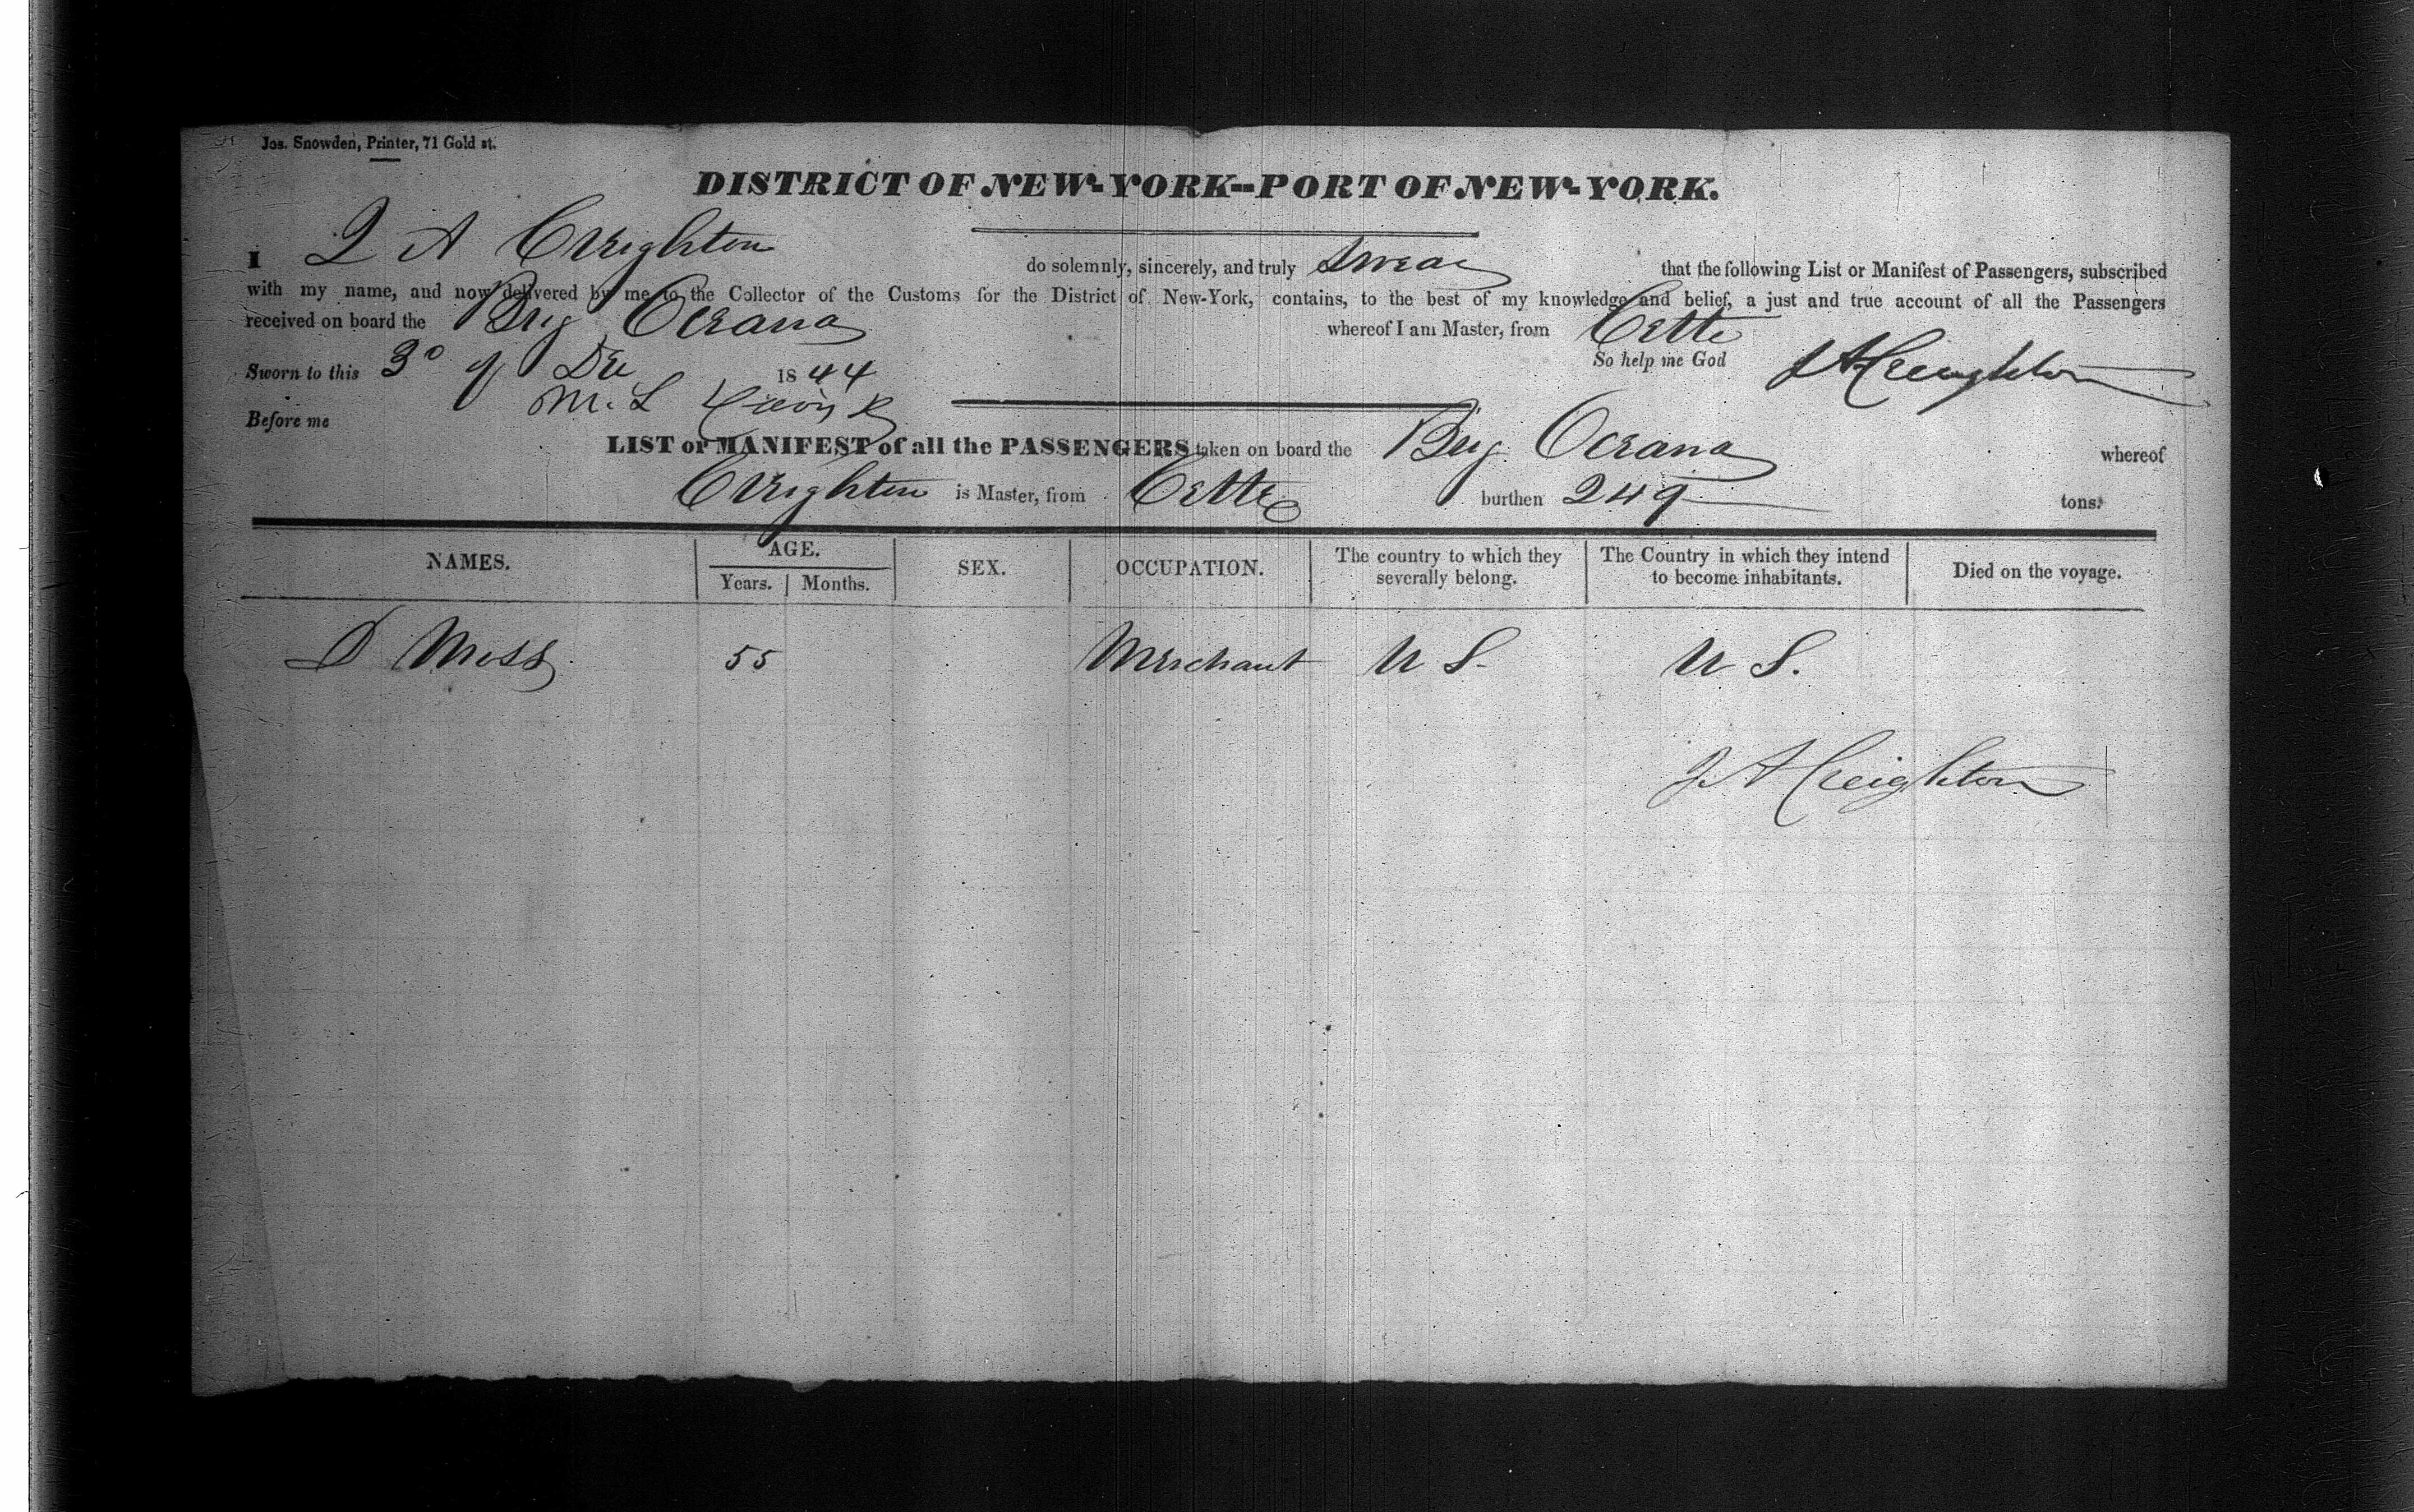 Jos. Snowden, Printer, 71 Gold st.
DISTRICT OF NEW-YORK--PORT OF NEW-YORK.
I J A Creighton do solemnly, sincerely, and truly Swear that the following List or Manifest of Passengers, subscribed
with my name, and now delivered by me to the Collector of the Customs for the District of New-York, contains, to the best of my knowledge and belief, a just and true account of all the Passengers
received on board the Brig Oceana whereof I am Master, from Cette
Sworn to this 3º of Dec 1844 So help me God J A Creighton
Before me M. L
LIST or MANIFEST of all the PASSENGERS taken on board the Brig Oceana whereof
Creighton is Master, from Cette burthen 249 tons.
NAMES. AGE. Years. Months. SEX. OCCUPATION. The country to which they severally belong. The Country in which they intend to become inhabitants. Died on the voyage.
D Moss 55 Merchant U S. U S.
J A Creighton